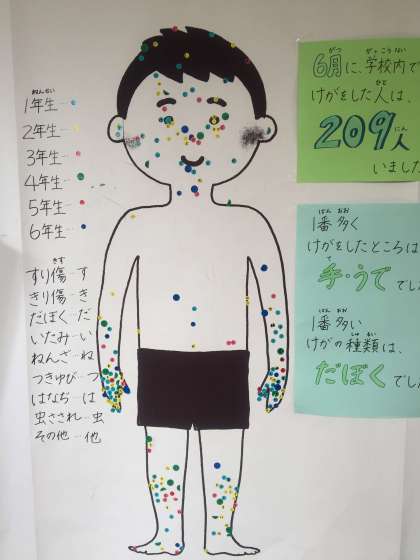 1年生
2年生
3年生
4年生
5年生
6年生
すり傷－す
きり傷－き
だぼく－だ
いたみ－い
ねんざ－ね
つきゆび－つ
はなぢ－は
虫さされ－虫
その他－他
6月に、学校内で
けがをした人は、
209人
いました
1番多く
けがをしたところは
手・うで でし
1番多い
けがの種類は、
だぼく でし